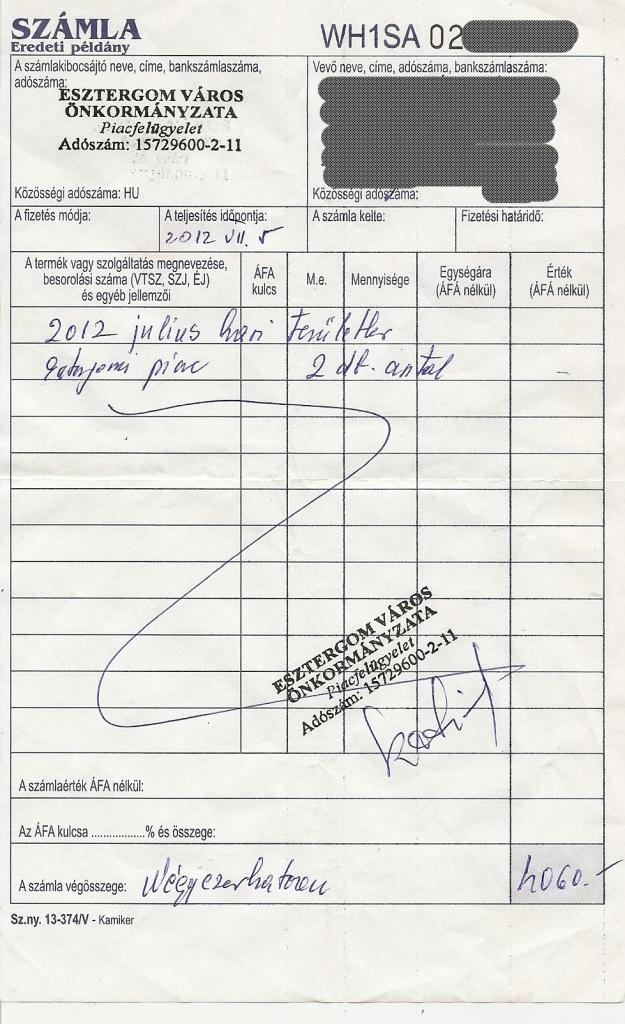 SZÁMLA
Eredeti példány
WH1SA 02
A számlakibocsájtó neve, címe, bankszámlaszáma,
adószáma:
ESZTERGOM VÁROS
ÖNKORMÁNYZATA
Piacfelügyelet
Adószám: 15729600-2-11
Közösségi adószáma: HU
Vevő neve, címe, adószáma, bankszámlaszáma:
Közösségi adószáma:
A fizetés módja:
A teljesítés időpontja:
2012 VII. 5
A számla kelte:
Fizetési határidő:
A termék vagy szolgáltatás megnevezése,
besorolási száma (VTSZ, SZJ, ÉJ)
és egyéb jellemzői
ÁFA
kulcs
M.e.
Mennyisége
Egységára
(ÁFÁ nélkül)
Érték
(ÁFÁ nélkül)
2012 július havi
piac 2 db. asztal -
ESZTERGOM VÁROS
ÖNKORMÁNYZATA
Piacfelügyelet
Adószám: 15729600-2-11
A számlaérték ÁFA nélkül:
Az ÁFA kulcsa ..................% és összege:
A számla végösszege: Négyezerhatvan 4060.-
Sz.ny. 13-374/V - Kamiker